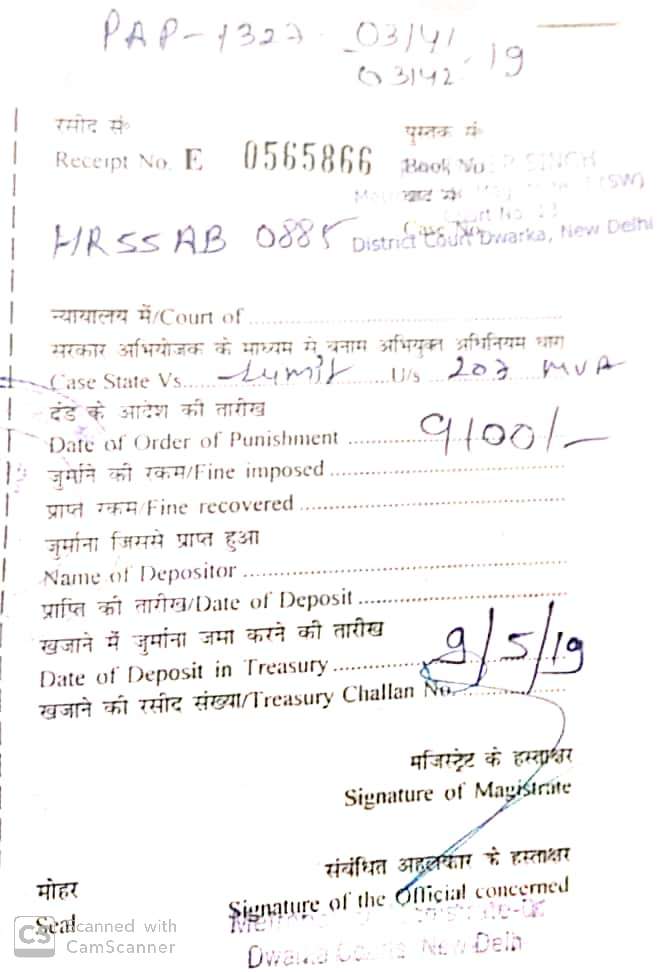 PAP-1327 03/41
03142 19
रसीद सं०
पुस्तक सं०
Receipt No. E 0565866
Book No. P. SINGH
वाद सं० (SW)
Court No.
Case No.
HR55AB 0885
District Court Dwarka, New Delhi
न्यायालय में/Court of
सरकार अभियोजक के माध्यम से बनाम अभियुक्त अधिनियम धारा
Case State Vs. Sumit U/s 207 MVA
दंड के आदेश की तारीख
Date of Order of Punishment 9100/-
जुर्माने की रकम/Fine imposed
प्राप्त रकम/Fine recovered
जुर्माना जिससे प्राप्त हुआ
Name of Depositor
प्राप्ति की तारीख/Date of Deposit
खजाने में जुर्माना जमा करने की तारीख
Date of Deposit in Treasury 9/5/19
खजाने की रसीद संख्या/Treasury Challan No.
मजिस्ट्रेट के हस्ताक्षर
Signature of Magistrate
संबंधित अहलकार के हस्ताक्षर
मोहर
Signature of the Official concerned
Seal
Dwarka Courts New Delhi
CS Scanned with
CamScanner